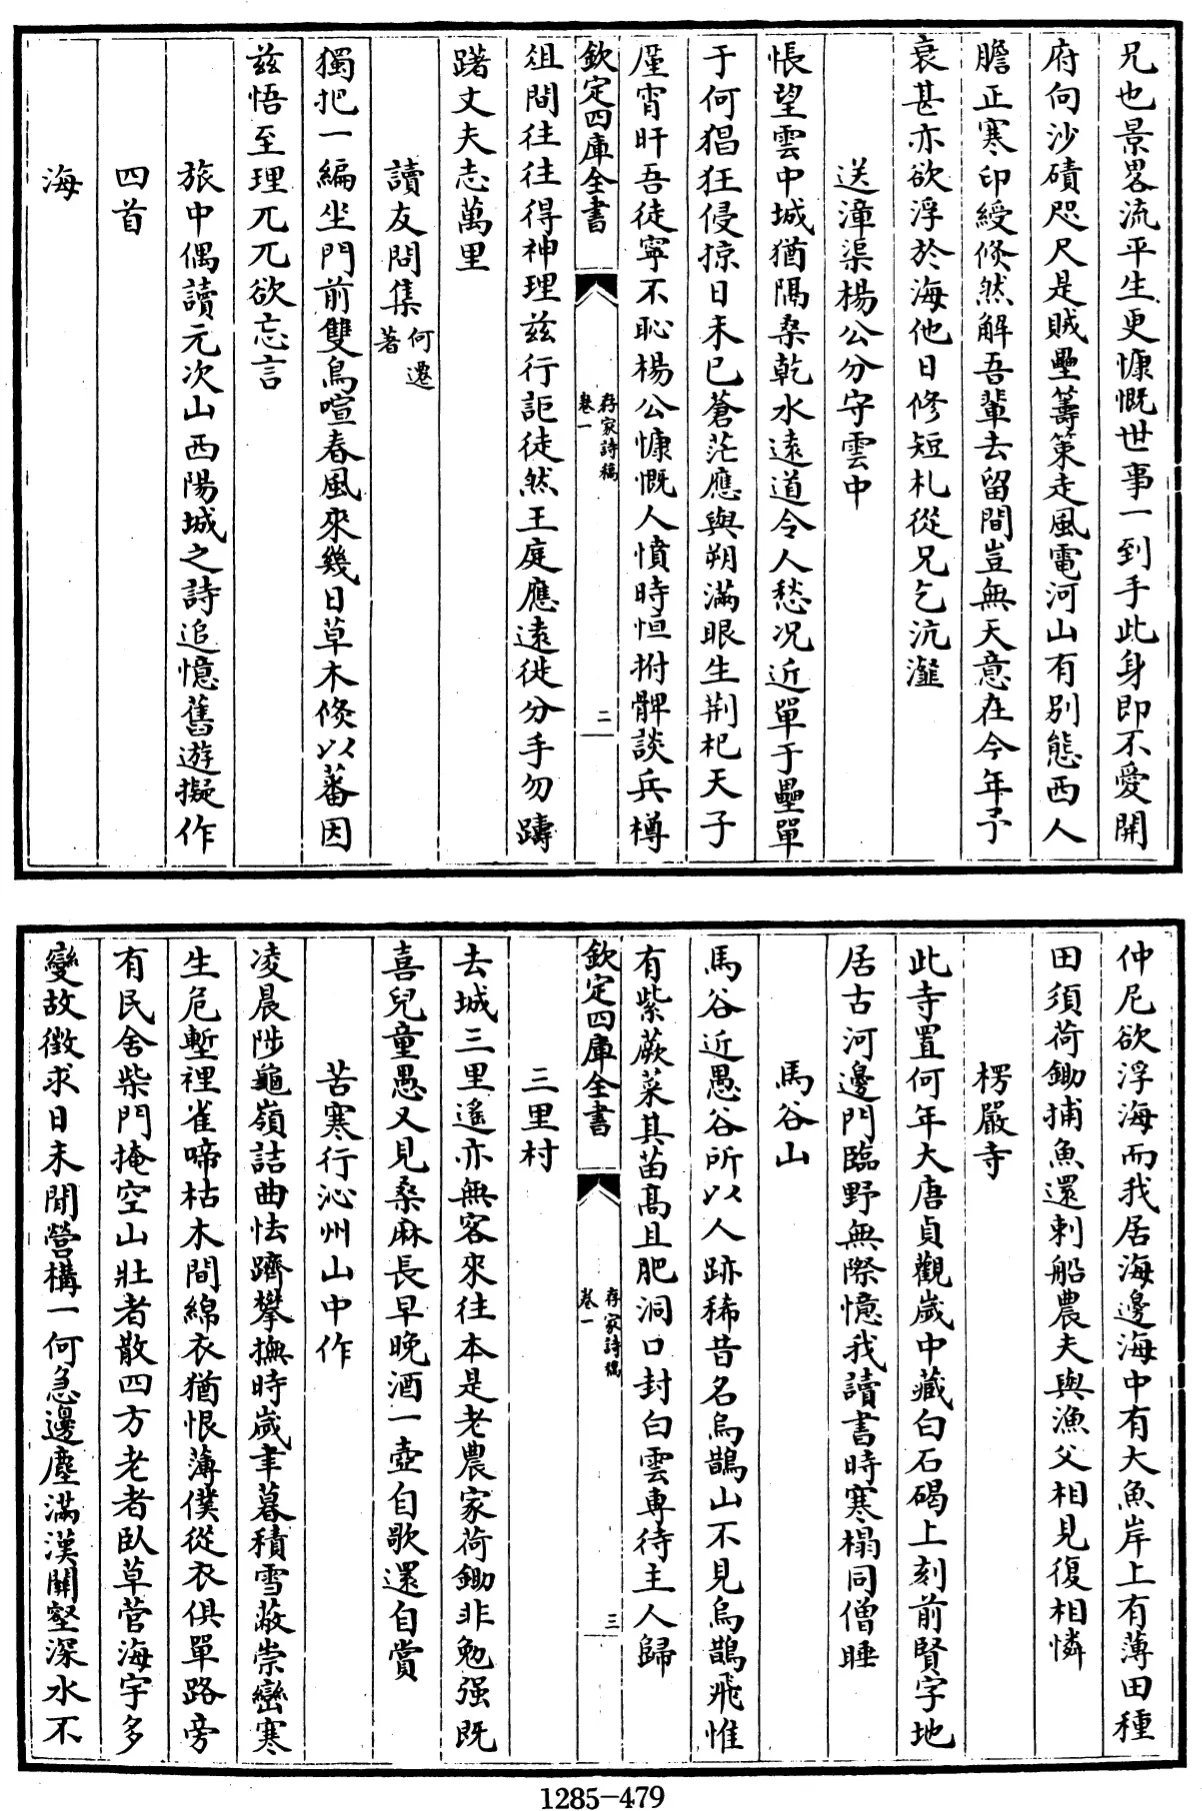 兄也景畧流平生更慷慨世事一到手此身即不愛開
府向沙磧咫尺是賊壘籌策走風電河山有別態西人
膽正寒印綬倐然解吾輩去留間豈無天意在今年予
衰甚亦欲浮於海他日修短札從兄乞沆瀣
送漳渠楊公分守雲中
悵望雲中城猶隔桑乾水遠道令人愁况近單于壘單
于何猖狂侵掠日未已蒼茫應與朔滿眼生荆杞天子
厪宵旰吾徒寧不恥楊公慷慨人憤時恒拊髀談兵樽
欽定四庫全書
存家詩稿
卷一
二
俎間往往得神理兹行詎徒然王庭應遠徙分手勿躊
躇丈夫志萬里
讀友問集何遷
著
獨把一編坐門前雙鳥喧春風來幾日草木倐以蕃因
兹悟至理兀兀欲忘言
旅中偶讀元次山西陽城之詩追憶舊遊擬作
四首
海
仲尼欲浮海而我居海邊海中有大魚岸上有薄田種
田須荷鋤捕魚還剌船農夫與漁父相見復相憐
楞嚴寺
此寺置何年大唐貞觀歲中藏白石碣上刻前賢字地
居古河邊門臨野無際憶我讀書時寒榻同僧睡
馬谷山
馬谷近愚谷所以人跡稀昔名烏鵲山不見烏鵲飛惟
有紫蕨菜其苗髙且肥洞口封白雲専待主人歸
欽定四庫全書
存家詩稿
卷一
三
三里村
去城三里遙亦無客來往本是老農家荷鋤非勉强既
喜兒童愚又見桑麻長早晚酒一壺自歌還自賞
苦寒行沁州山中作
凌晨陟龜嶺詰曲怯躋攀撫時歲聿暮積雪蔽崇巒寒
生危塹裡雀啼枯木間綿衣猶恨薄僕從衣俱單路旁
有民舍柴門掩空山壯者散四方老者臥草菅海宇多
變故徴求日未聞營構一何急邊塵滿漢關壑深水不
1285-479